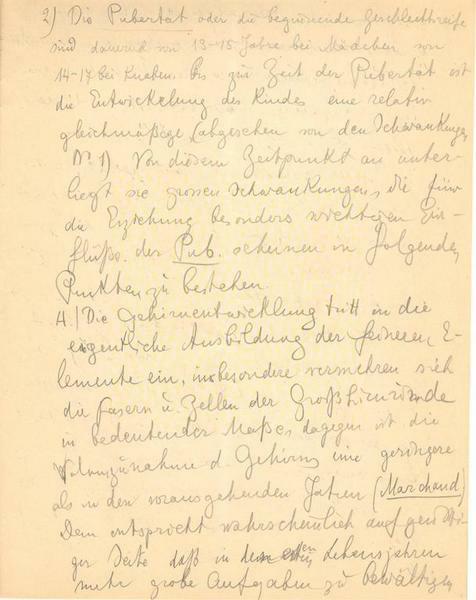 2) Die Pubertät oder die beginnende Geschlechtsreife
sind dauernd von 13-15 Jahre bei Mädchen von
14-17 bei Knaben. Bis zur Zeit der Pubertät ist
die Entwickelung des Kindes eine relativ
gleichmäßige, (abgesehen von den Schwankungen
N° 1). Von diesem Zeitpunkt an unter-
liegt sie grossen Schwankungen, die für
die Erziehung besonders wichtigen Ein-
flüße der Pub. scheinen in folgenden
Punkten zu bestehen.
4.) Die Gehirnentwicklung tritt in die
eigentliche Ausbildung der feineren E-
lemente ein, insbesondere vermehren sich
die Fasern u. Zellen der Großhirnrinde
in bedeutender Maßes, dagegen ist die
Volumzunahme d. Gehirns eine geringere
als in den vorausgehenden Jahren (Marchand)
Dem entspricht wahrscheinlich auf geisti-
ger Seite daß in den ersten Lebensjahren
mehr grobe Aufgaben zu bewältigen